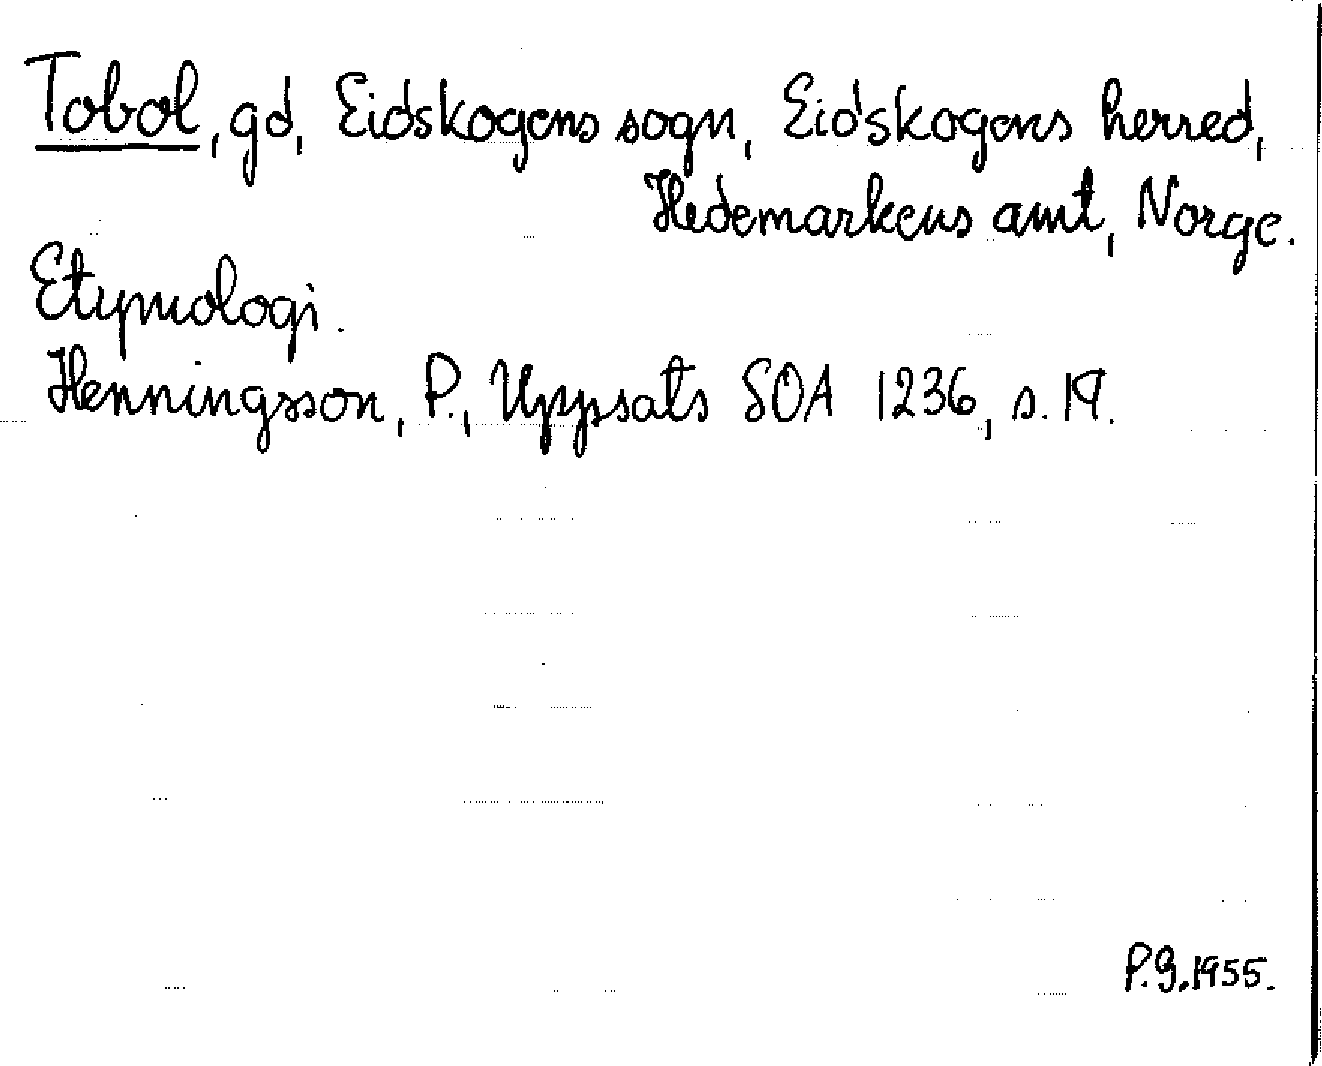 Tobol, gd, Eidskogens sogn, Eidskogens herred,
Hedemarkens amt, Norge.
Etymologi.
Henningsson, P., Uppsats SOA 1236, s. 19.
P.G. 1955.